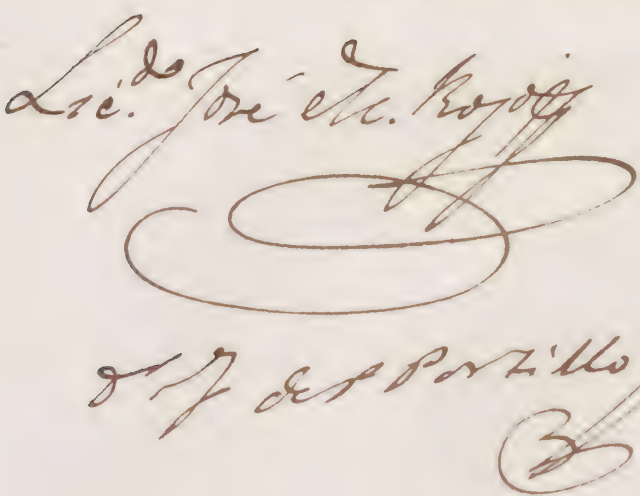 Lic.do José M. Rojas
Dr J del Portillo